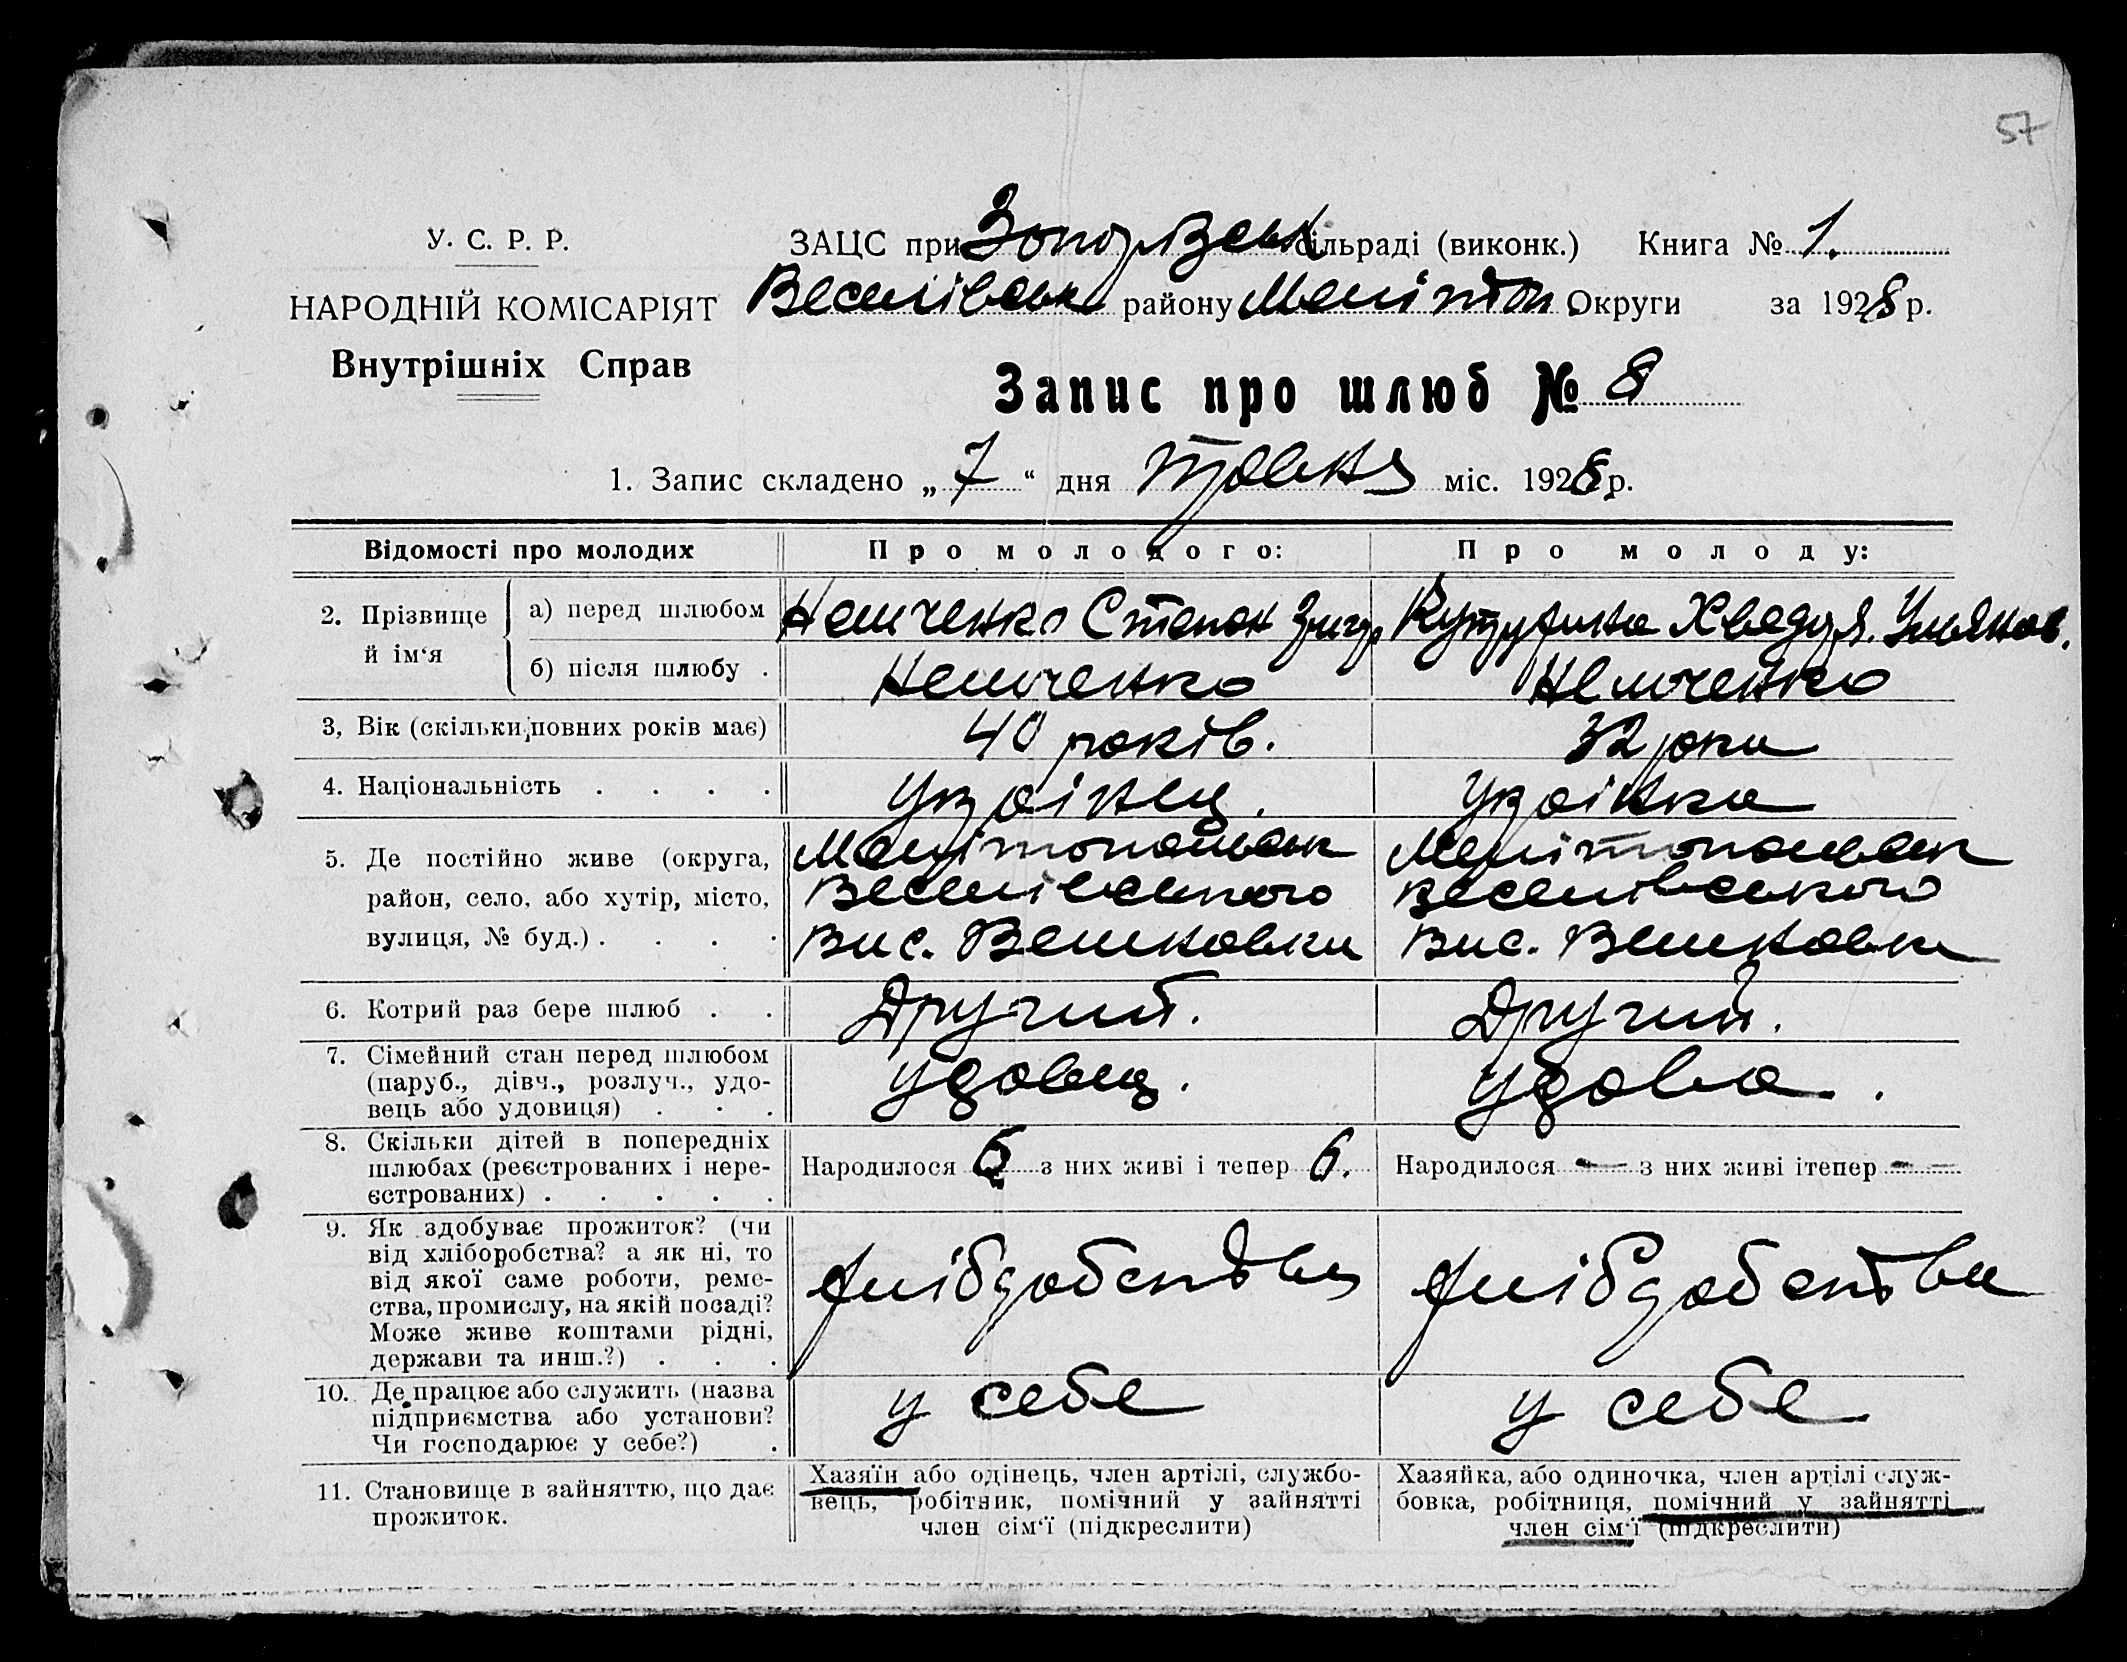 57
У. С. Р. Р.
НАРОДНІЙ КОМІСАРІЯТ
Внутрішніх Справ
ЗАЦС при сільраді (виконк.) Книга № 1.
Веселівськ району Меліттоп. Округи за 1928 р.
Запис про шлюб № 8
1. Запис складено „ 7 “ дня травня міс. 1928 р.
Відомості про молодих Про молодого: Про молоду:
2. Прізвище й ім‘я
а) перед шлюбом Немченко Степан Григ Хведося Ульянов.
б) після шлюбу . Немченко Немченко
3, Вік (скільки повних років має) 40 років. 32 роки
4. Національність . . . . Украінец. Украінка
5. Де постійно живе (округа, Мелітопольськ Мелітопольськ
район, село, або хутір, місто, Веселівського Веселівського
вулиця, № буд.) . . . . Вис. Вис.
6. Котрий раз бере шлюб . . Другий. Другий.
7. Сімейний стан перед шлюбом
(паруб., дівч., розлуч., удо-
вець або удовиця) . . . удовец. удова.
8. Скільки дітей в попередніх
шлюбах (реєстрованих і нере-
єстрованих) . . . . .
Народилося 6 з них живі і тепер 6.
Народилося — з них живі ітепер — —
9. Як здобуває прожиток? (чи
від хліборобства? а як ні, то
від якої саме роботи, реме-
ства, промислу, на якій посаді?
Може живе коштами рідні,
держави та инш.?) . . .
10. Де працює або служить (назва
підприємства або установи?
Чи господарює у себе?) .
у себе у себе
11. Становище в зайняттю, що дає
прожиток.
Хазяїн або одінець, член артілі, службо-
вець, робітник, помічний у зайнятті
член сім‘ї (підкреслити)
Хазяйка, або одиночка, член артілі служ-
бовка, робітниця, помічний у зайнятті
член сім‘ї (підкреслити)